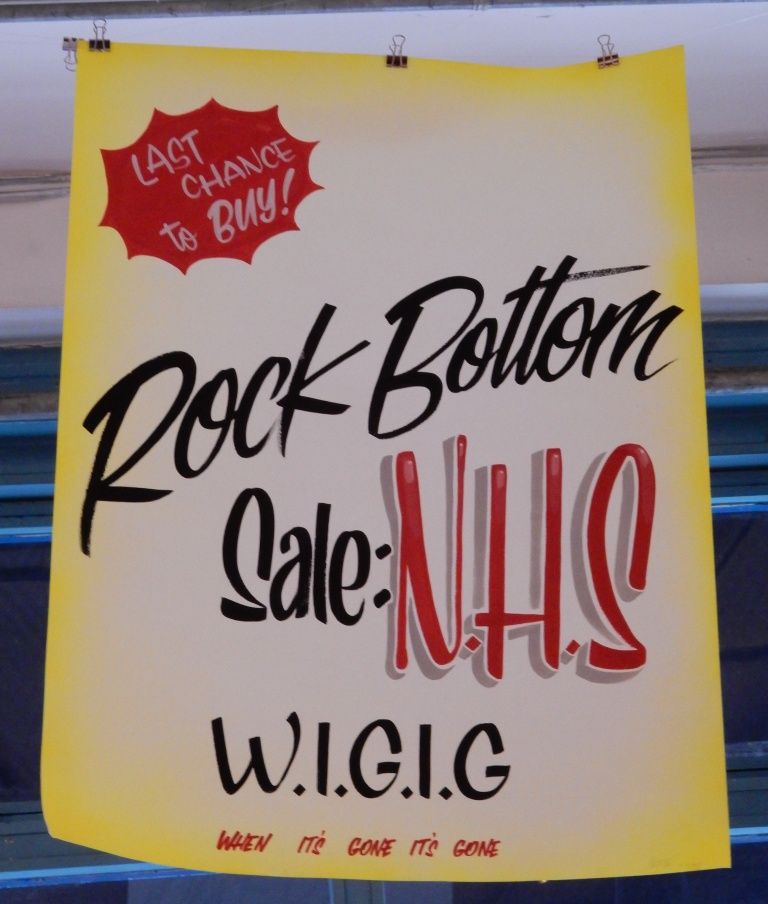 LAST
CHANCE
to BUY!
Rock Bottom
Sale: N.H.S
W.I.G.I.G
WHEN IT'S GONE IT'S GONE